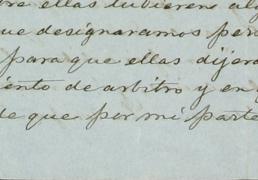 ellas tubieren al
que designaramos per
para que ellas dijera
iento de arbitro y en
de que por mi parte